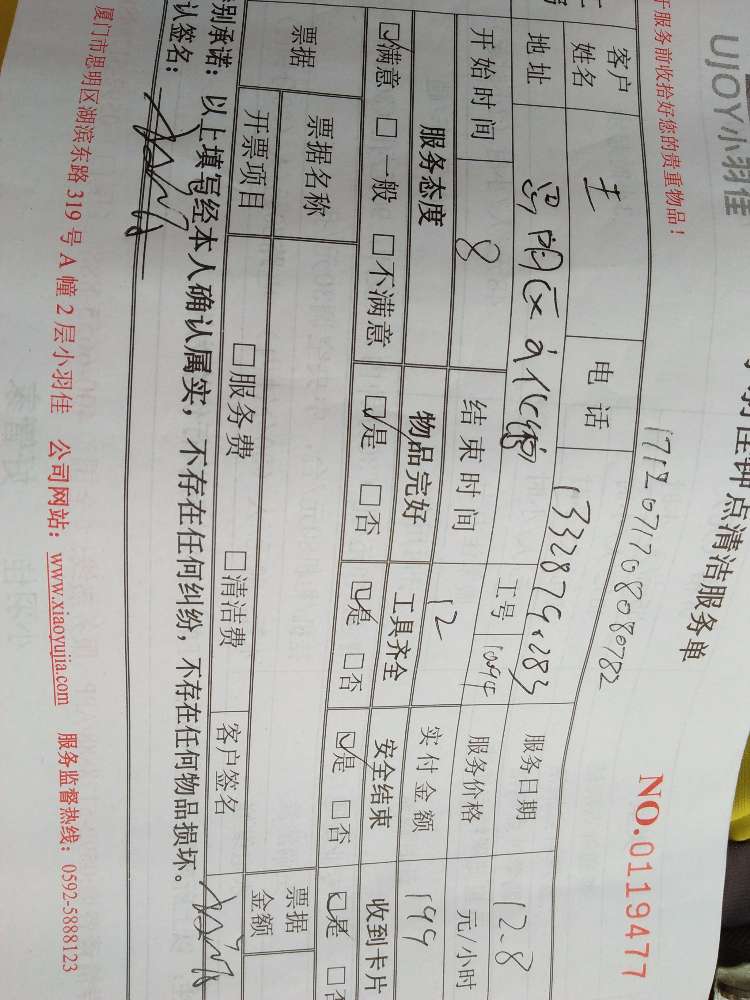 UJOY小羽佳
钟点清洁服务单
NO.0119477
于服务前收拾好您的贵重物品！
1712071708080782
客户姓名 王 电话 服务日期 12.8
地址 思明区 工号 服务价格 元/小时
开始时间 8 结束时间 12 实付金额 199
服务态度 物品完好 工具齐全 安全结束 收到卡片
☑满意 □一般 □不满意 ☑是 □否 ☑是 □否 ☑是 □否 ☑是 □否
票据 票据名称 票据金额
开票项目 □服务费 □清洁费 客户签名
别承诺：以上填写经本人确认属实，不存在任何纠纷，不存在任何物品损坏。
认签名：
厦门市思明区湖滨东路319号A幢2层小羽佳 公司网站：www.xiaoyujia.com 服务监督热线：0592-5888123